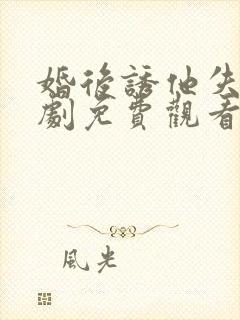 婚後誘他失
劇免費觀看
風光